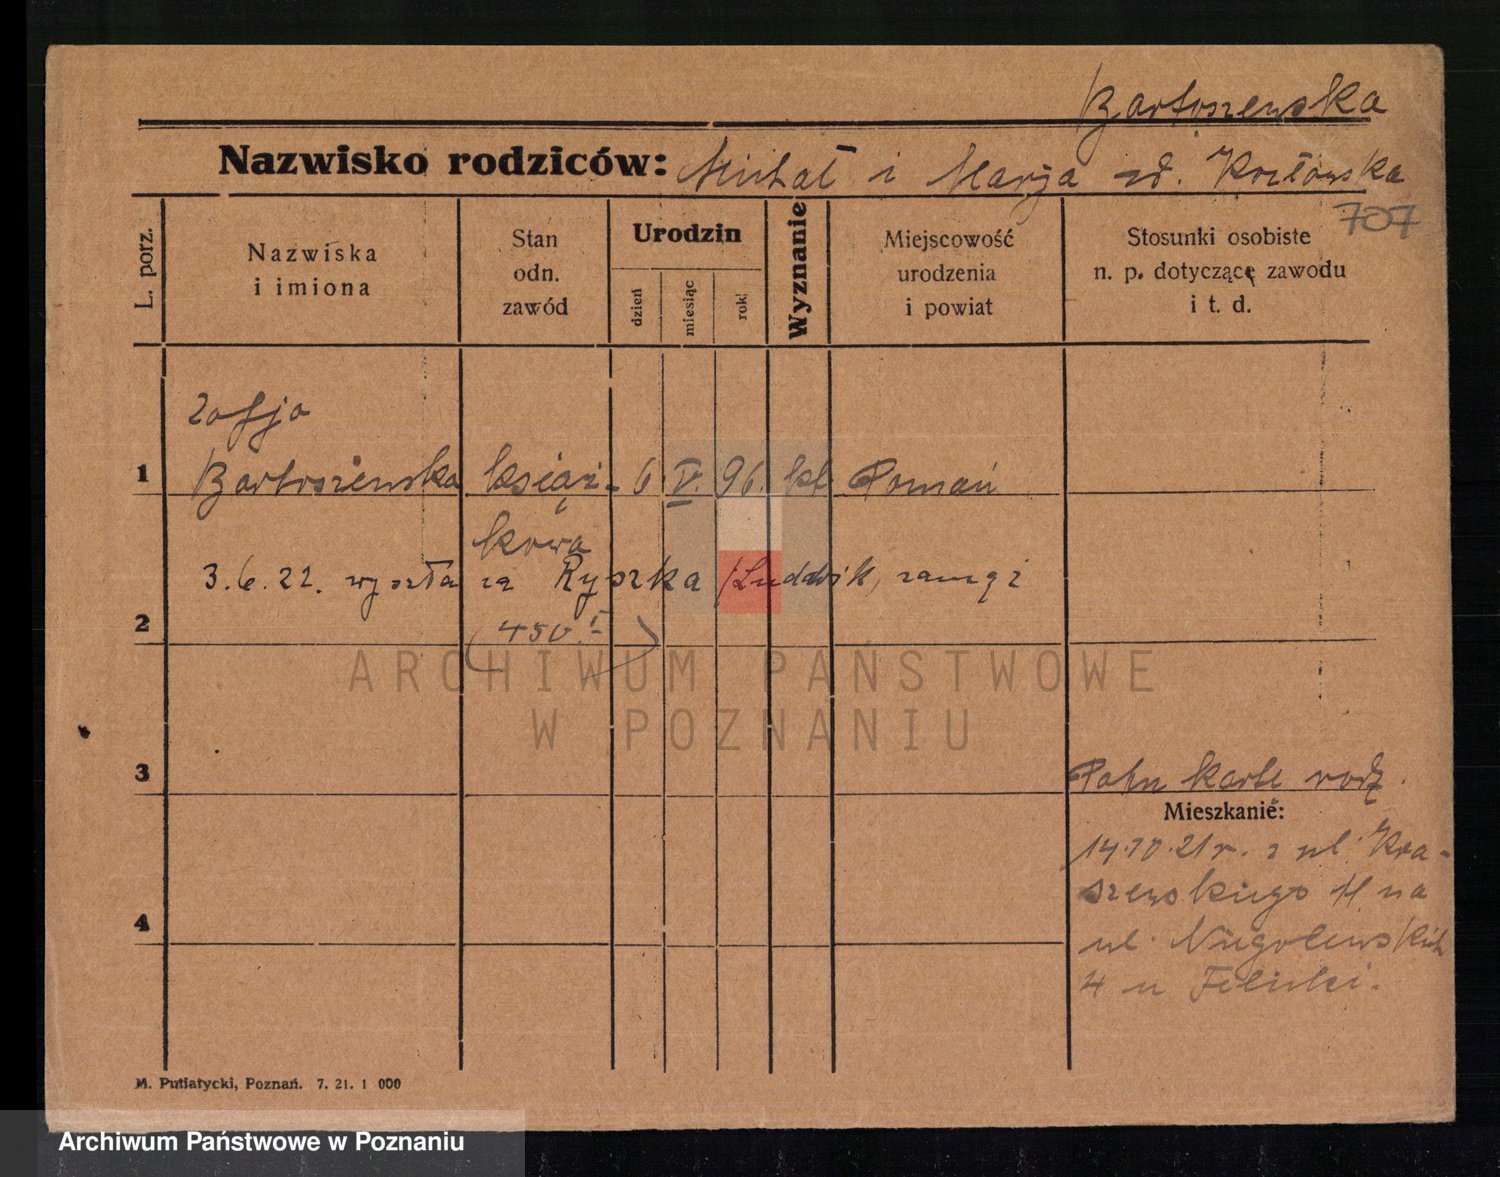 Bartoszewska
Nazwisko rodziców: Michał i Marja zd. Kozłowska
707
L. porz.
Nazwiska
i imiona
Stan
odn.
zawód
Urodzin
dzień
miesiąc
rok
Wyznanie
Miejscowość
urodzenia
i powiat
Stosunki osobiste
n. p. dotyczące zawodu
i t. d.
Zofja
1 Bartoszewska książ- 6 V. 96. kt Poznań
kowa
3.6.22. wyszła za Ryszka /Ludwik, zamąż
2 (450.I)
3
karte rodz.
Mieszkanie:
14.IV.21 r. z ul. Kra-
szewskiego 11 na
4
ul. Niegolewskich
4 u
M. Putiatycki, Poznań. 7. 21. 1 000
ARCHIWUM PAŃSTWOWE
W POZNANIU
Archiwum Państwowe w Poznaniu